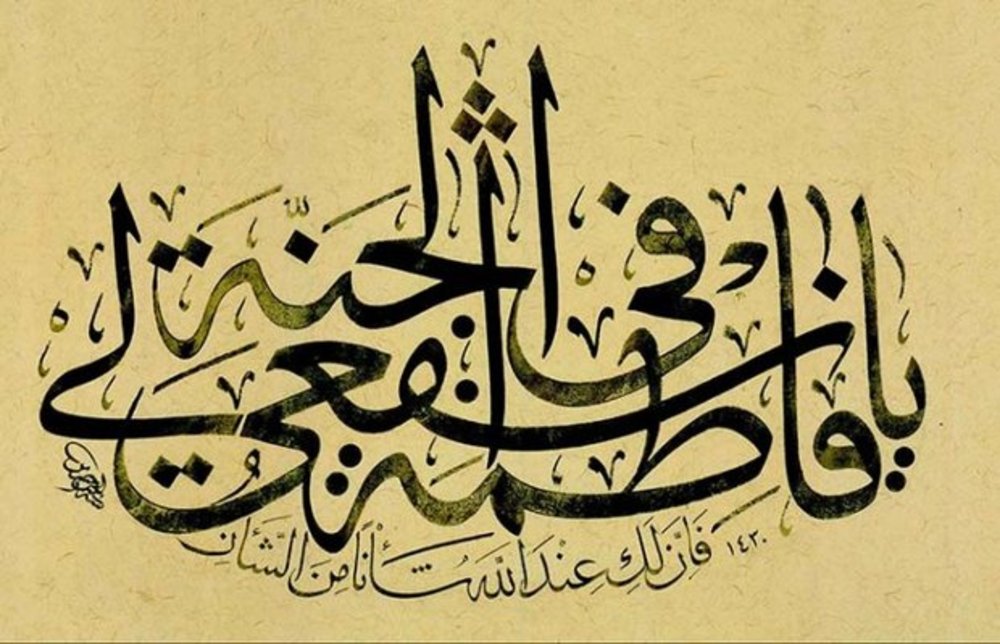 يا فاطمة اشفعي لي في الجنة
فَإِنَّ لَكِ عِنْدَ اللهِ شَأْنًا مِنَ الشَّأْنِ
١٤٣٠